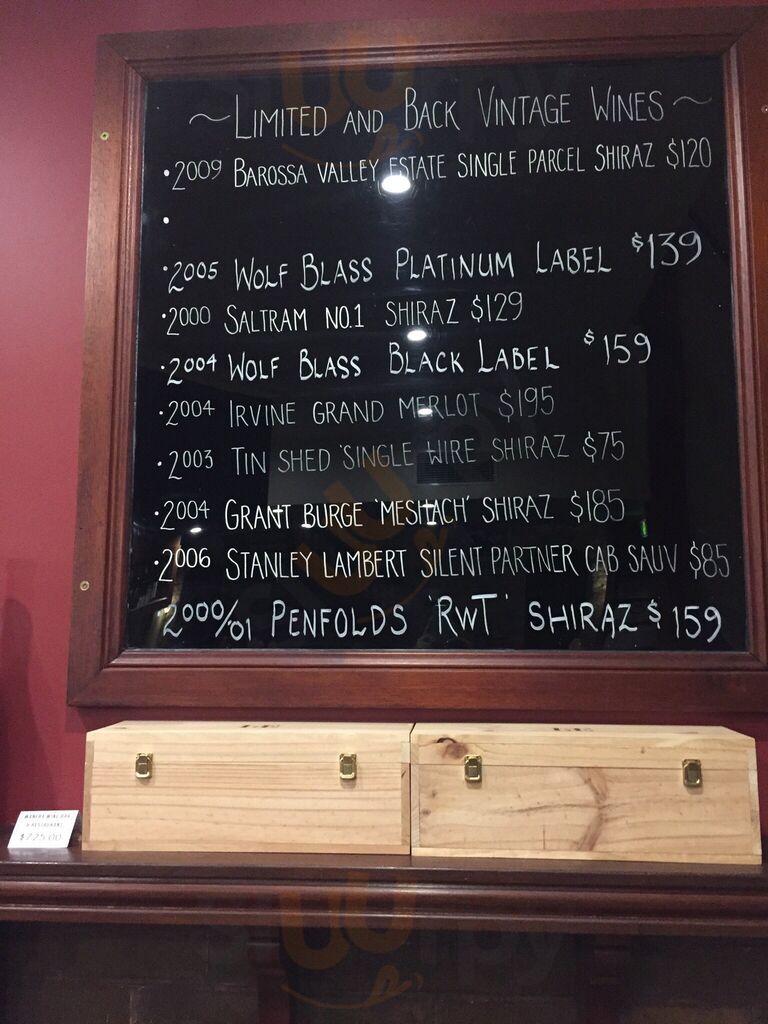 ~LIMITED AND BACK VINTAGE WINES~
• 2009 BAROSSA VALLEY ESTATE SINGLE PARCEL SHIRAZ $120
•
• 2005 WOLF BLASS PLATINUM LABEL $139
• 2000 SALTRAM NO.1 SHIRAZ $129
• 2004 WOLF BLASS BLACK LABEL $159
• 2004 IRVINE GRAND MERLOT $195
• 2003 TIN SHED 'SINGLE WIRE SHIRAZ $75
• 2004 GRANT BURGE 'MESHACH' SHIRAZ $185
• 2006 STANLEY LAMBERT SILENT PARTNER CAB SAUV $85
• 2000/01 PENFOLDS 'RWT' SHIRAZ $159
& RESTAURANT
$725.00